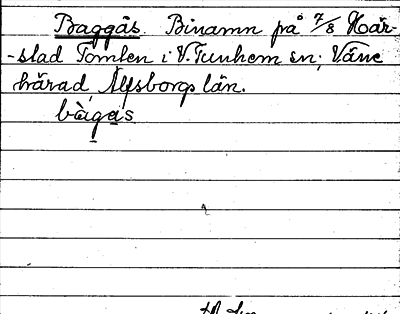 Baggås. Binamn på 7/8 Här-
-stad Tomten i V. Tunhem sn; Väne
härad, Älfsborgs län.
bàgas